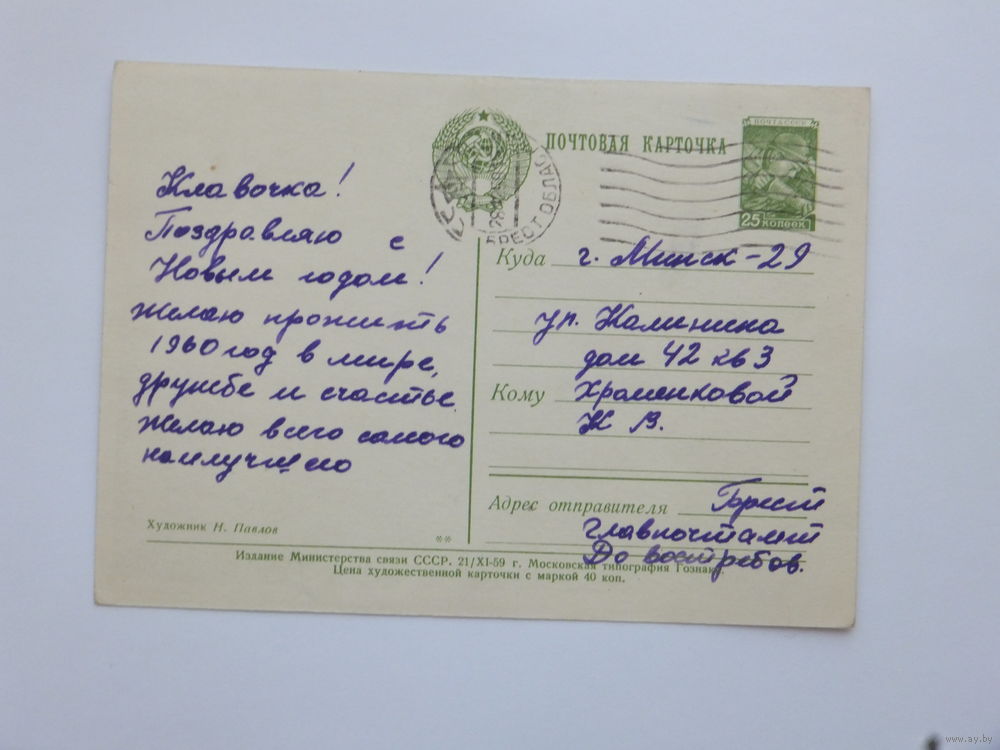 ПОЧТОВАЯ КАРТОЧКА
ПОЧТА СССР
25 КОПЕЕК
БРЕСТ ОБЛАС
Клавочка!
Поздравляю с
Новым годом!
Желаю прожить
1960 год в мире,
дружбе и счастье.
Желаю всего самого
наилучшего
Художник Н. Павлов
Куда г. Минск-29
ул. Калинина
дом 42 кв 3
Кому Хроменковой
К В.
Адрес отправителя Брест
главпочтамт
До востребов.
**
Издание Министерства связи СССР. 21/XI-59 г. Московская типография Гознака.
Цена художественной карточки с маркой 40 коп.
www.ay.by